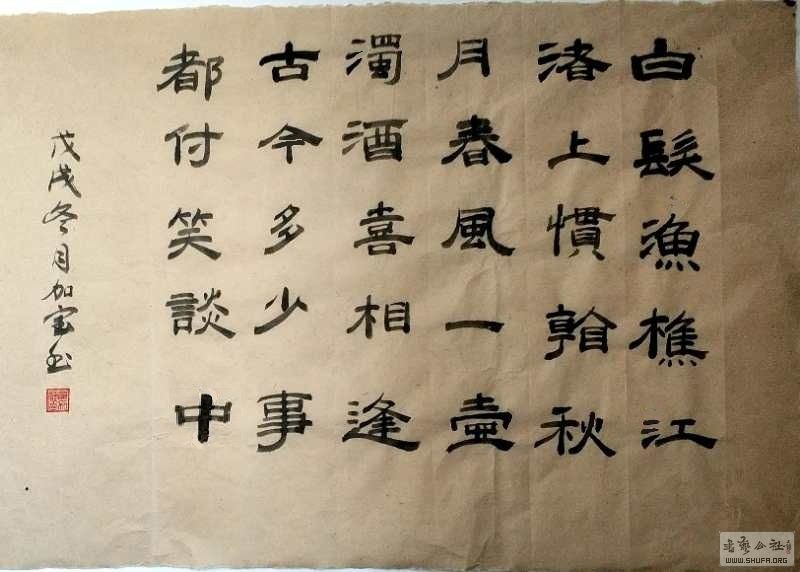 白髮漁樵江
渚上慣翰秋
月春風一壺
濁酒喜相逢
古今多少事
都付笑談中
戊戌冬月加宝书
书艺公社
WWW.SHUFA.ORG